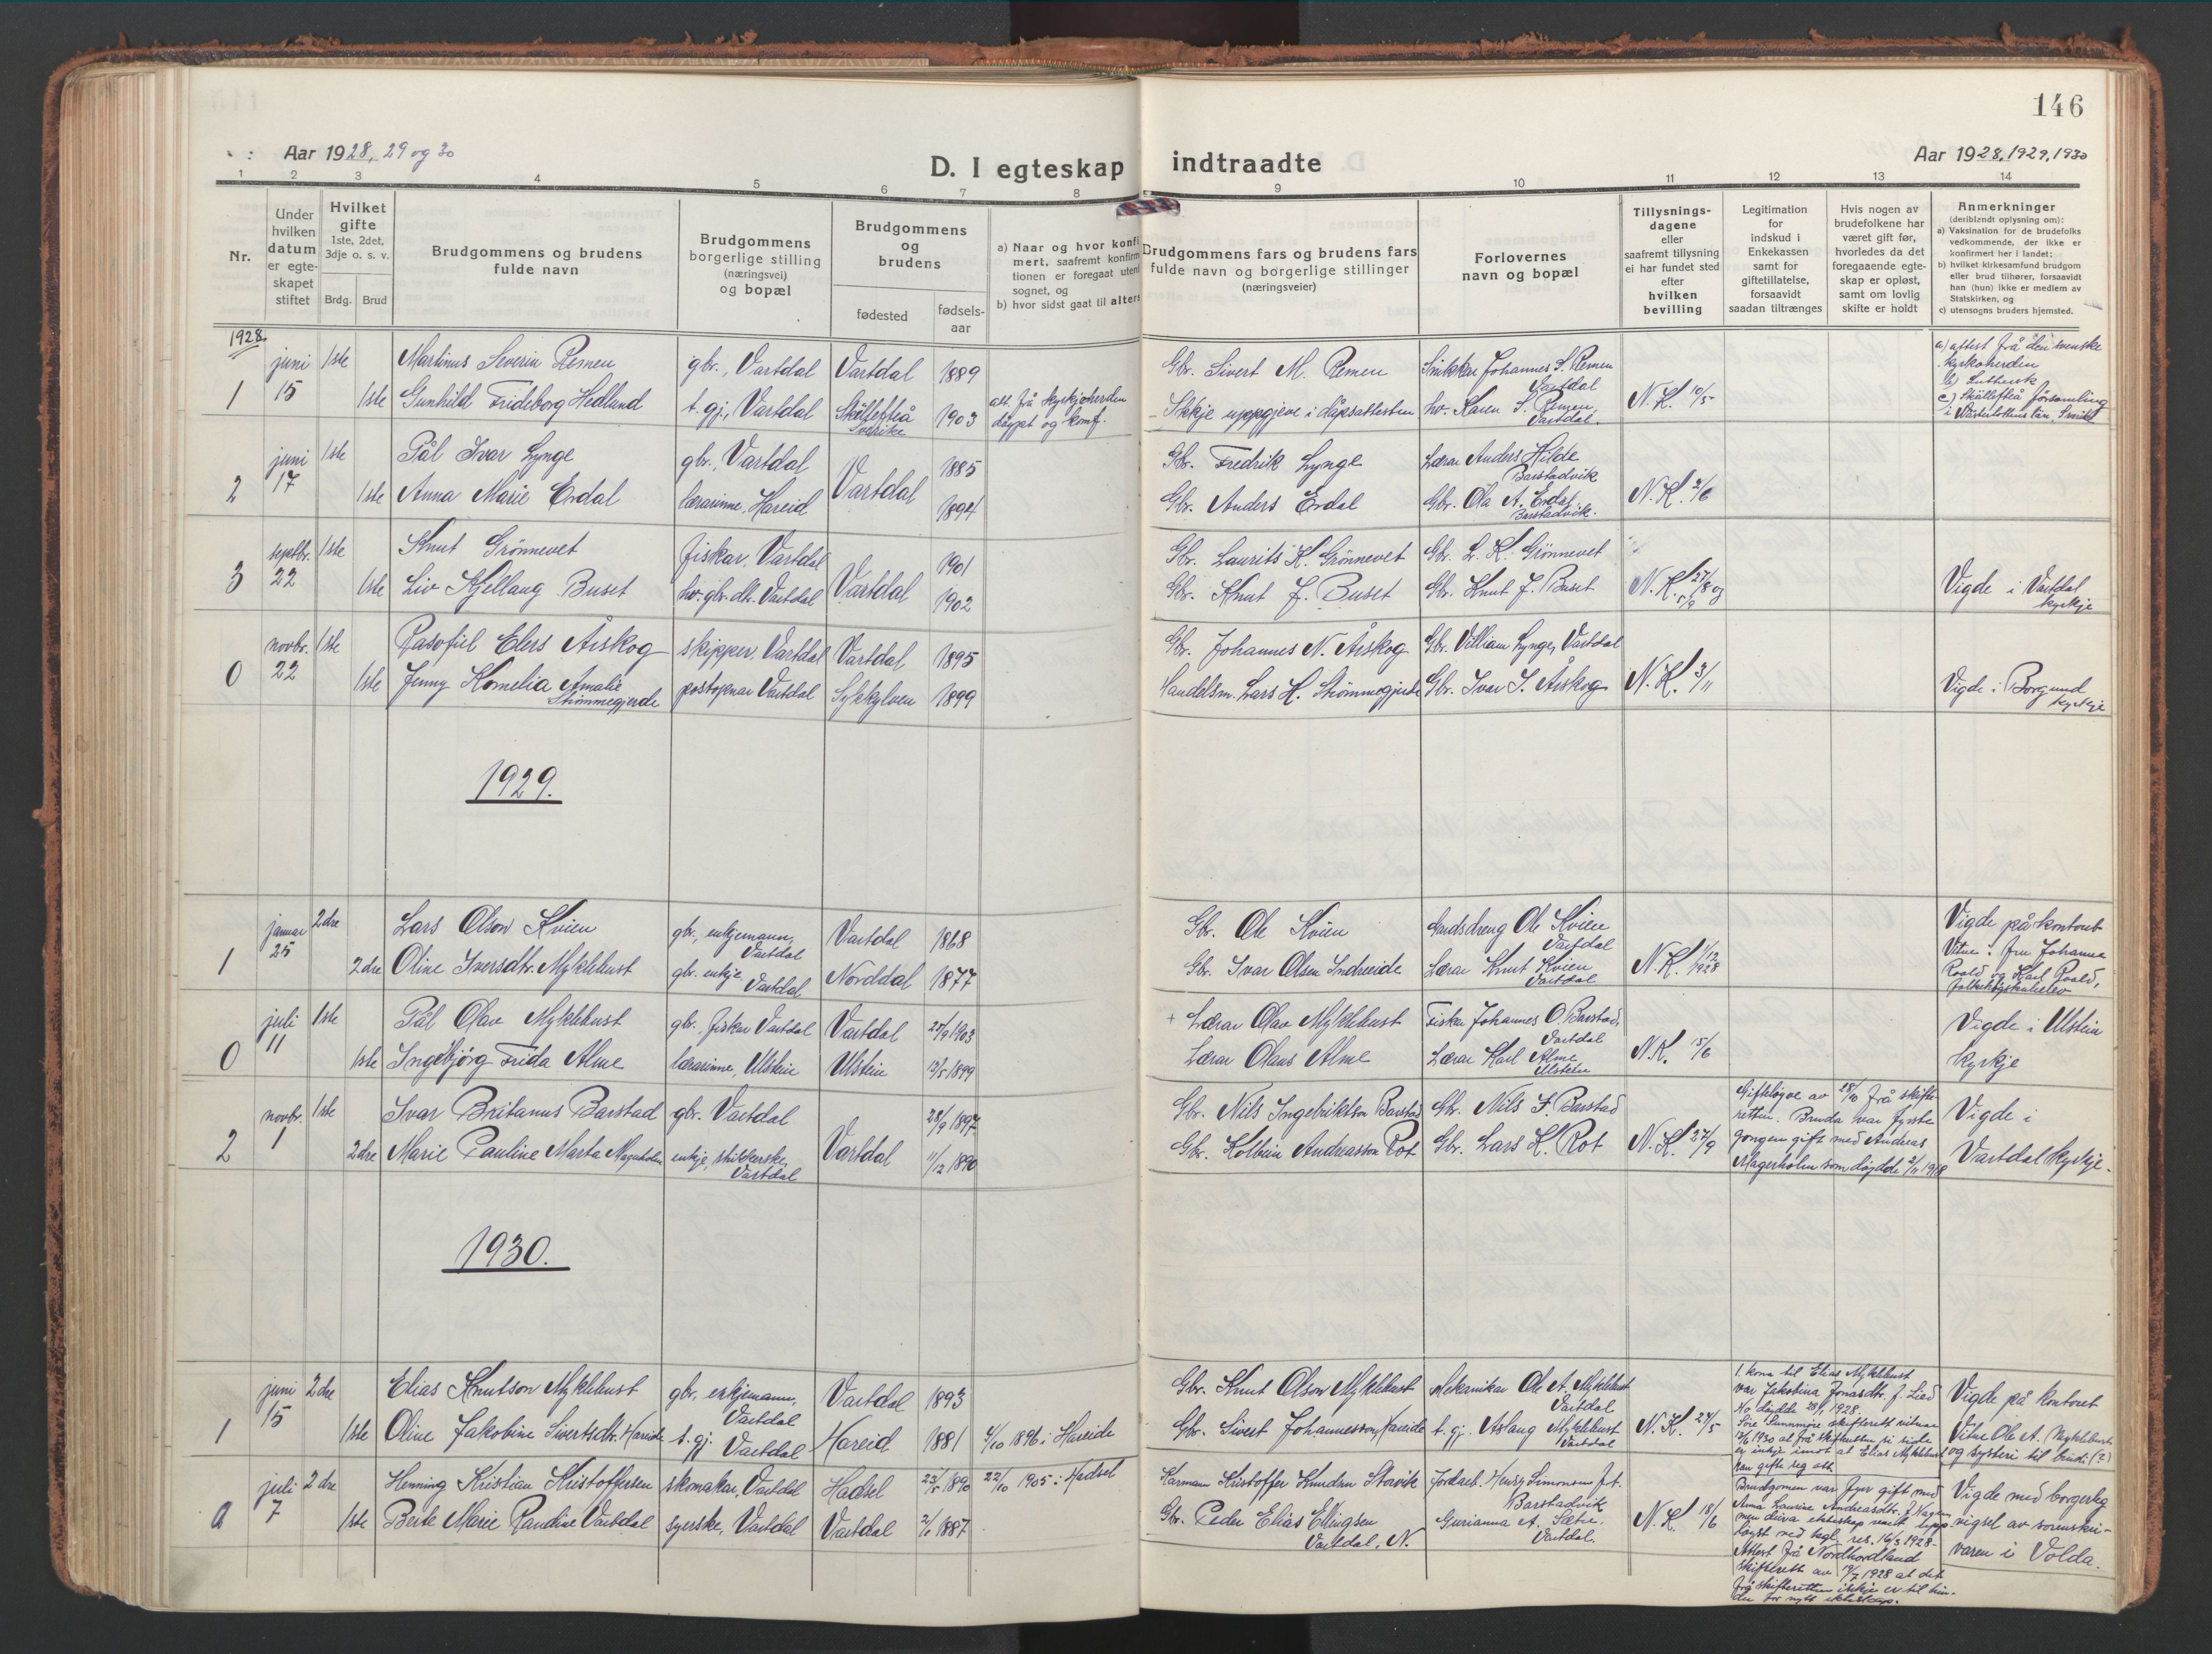 146
Aar 1928, 29 og 30
D. I egteskap indtraadte
Aar 1928, 1929, 1930
1 2 3 4 5 6 7 8 9 10 11 12 13 14
Nr.
Under hvilken datum er egteskapet stiftet
Hvilket gifte 1ste, 2det, 3dje o. s. v.
Brdg. Brud
Brudgommens og brudens fulde navn
Brudgommens borgerlige stilling (næringsvei) og bopæl
Brudgommens og brudens
fødested
fødsels-aar
a) Naar og hvor konfi
mert, saafremt konfirm
tionen er foregaat uten
sognet, og
b) hvor sidst gaat til alters
Brudgommens fars og brudens fars
fulde navn og borgerlige stillinger
(næringsveier)
Forlovernes
navn og bopæl
Tillysnings-
dagene
eller
saafremt tillysning
ei har fundet sted
efter
hvilken
bevilling
Legitimation
for
indskud i
Enkekassen
samt for
giftetillatelse,
forsaavidt
saadan tiltrænges
Hvis nogen av
brudefolkene har
været gift før,
hvorledes da det
foregaaende egte-
skap er opløst,
samt om lovlig
skifte er holdt
Anmerkninger
(deriblandt oplysning om):
a) Vaksination for de brudefolks
vedkommende, der ikke er
konfirmert her i landet;
b) hvilket kirkesamfund brudgom
eller brud tilhører, forsaavidt
han (hun) ikke er medlem av
Statskirken, og
c) utensogns bruders hjemsted.
1928.
1 juni 15 1ste Martinus Severin Remen gbr., Vartdal Vartdal 1889 Gbr. Sivert M. Remen Snikkar Johannes S. Remen Vartdal
1ste Gunhild Frideborg Hedlund t. gj., Vartdal Skällefteå Sverike 1903 att. frå kyrkjoherden døypt og konf. Ikkje uppgjeve i dåpsattesten hv. Karen S. Remen, Vartdal. N. K. 10/5
a) attest frå den svenske
kyrkoherden
b) Luthersk
c) Skällefteå församling
i Västerbottens län, Sverike
2 juni 17 1ste Pål Ivar Lynge gbr., Vartdal Vartdal 1885 Gbr. Fredrik Lynge Lærar Anders Hilde Barstadvik
1ste Anna Marie Erdal lærarinne, Hareid 1894 Gbr. Anders Erdal Gbr. Ola A. Erdal Barstadvik. N. K. 2/6
3 septbr. 22 1ste Knut Grönnevet fiskar, Vartdal Vartdal 1901 Gbr. Laurits K. Grönnevet Gbr. L. K. Grönnevet
1ste Liv Kjellaug Buset hv. gbr. dt. Vartdal 1902 Gbr. Knut J. Buset Gbr. Knut J. Buset N. K. 27/8 og 5/9 Vigde i Vartdal kyrkje
0 novbr. 22 1ste Rasofiel Elers Årskog skipper, Vartdal Vartdal 1895 Gbr. Johannes N. Årskog Gbr. Villiam Lynge, Vartdal
1ste Jenny Kornelia Amalie Strömmegjerde postopnar Vartdal Sykkylven 1899 Handelsm. Lars H. Strömmegjerde Gbr. Ivar J. Årskog N. K. 3/11 Vigde i Borgund kyrkje
1929.
1 januar 25 2dre Lars Olson Kvien gbr., enkjemann, Vartdal Vartdal 1868 Gbr. Ole Kvien Gardsdreng Ole Kvien Vartdal
2dre Oline Iversdtr. Myklebust gbr. enkje Vartdal Norddal 1877 Gbr. Ivar Olsen Indreeide Lærar Knut Kvien Vartdal N. K. 1/12 1928
Vigde på kontoret
Vitne: fru Johanne
Roald og Karl Roald,
folkehögskuleelev
0 juli 11 1ste Pål Olav Myklebust gbr., fiskar Vartdal Vartdal 27/9 1903 + Lærar Olav Myklebust Fiskar Johannes O. Barstad, Vartdal
1ste Ingebjørg Frida Alme lærarinne, Ulstein Ulstein 13/5 1899 Lærar Olaus Alme Lærar Karl Alme, Ulstein N. K. 15/6 Vigde i Ulstein kyrkje
2 novbr. 1 1ste Ivar Britanus Barstad gbr. Vartdal Vartdal 28/9 1897 Gbr. Nils Ingebriktson Barstad Gbr. Nils I. Barstad
2dre Marie Pauline Marta Magerholm enkje, strikkerske Vartdal 11/12 1890 Gbr. Kolbein Andreasson Rot Gbr. Lars K. Rot N. K. 27/9
Gifteløyve av 28/10 frå skifte-
retten. Bruda var fyrste
gongen gift med Andreas
Magerholm som döydde 2/11 1918
Vigde i
Vartdal kyrkje.
1930.
1 juni 15 2dre Elias Knutson Myklebust gbr. enkjemann, Vartdal Vartdal 1893 Gbr. Knut Olson Myklebust Mekanikar Ole A. Myklebust Vartdal
1ste Oline Jakobine Sivertsdtr. Hareide t. gj. Vartdal Hareid 1881 4/10 1896 i Hareide Gbr. Sivert Johannesson Hareide t. gj. Aslaug Myklebust Vartdal N. K. 24/5
1. kona til Elias Myklebust
var Jakobina Jonasdtr. f. Lied
Ho döydde 28/1 1928.
Söre Sunnmöre skifterett vitnar
13/6 1930 at frå skifteretten si side
er inkje imot at Elias Myklebust
kan gifte seg att.
Vigde på kontoret
Vitne Ole A. Myklebust
og systeri til brudi (?)
2 juli 7 2dre Henning Kristian Kristoffersen skomakar, Vartdal Hadsel 23/5 1890 22/10 1905 i Hadsel Karmann Kristoffer Knudsen Storvik Jordarb. Henry Simonsen f. t. Barstadvik
1ste Berte Marie Raudine Vartdal syerske, Vartdal Vartdal 2/1 1887 Gbr. Peder Elias Ellingsen Vartdal, N. Gurianna A. Sætre, Vartdal. N. K. 18/6
Brudgomen var fyrr gift med
Anna Laurine Andreasdtr.
men deira ekteskap vart upp-
løyst ved kgl. res. 16/3 1928.
Attest frå Nordhordland
skifterett av 19/7 1928 at det
frå skifteretten ikkje er til hin-
der for nytt ekteskap.
Vigde med borgerleg
vigsel av sorenskri-
varen i Volda.